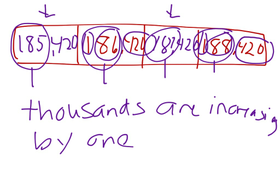 185,420 186 420 187 420 188 420
thousands are increasing
by one